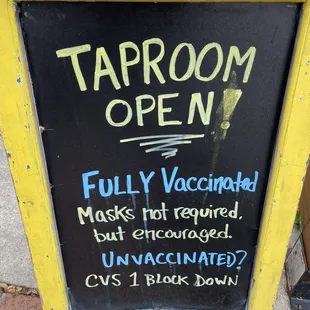 TAPROOM
OPEN!
FULLY Vaccinated
Masks not required,
but encouraged.
UNVACCINATED?
CVS 1 BLOCK DOWN